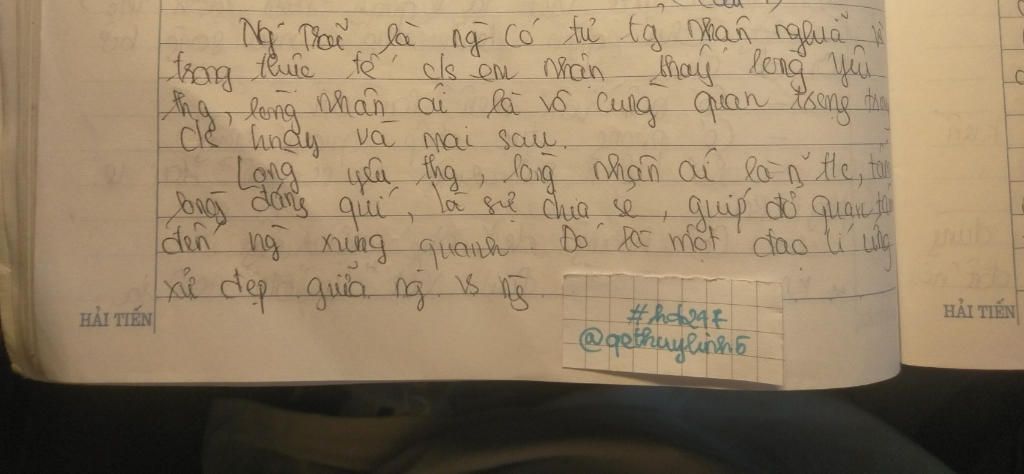 Ng Trãi là ng có tử tg nhân nghĩa
trong thực tế c/s em nhận thấy lòng yêu
thg, lòng nhân ái là vô cùng quan trọng
c/s hnay và mai sau.
Lòng yêu thg, lòng nhân ái là n~ t/c,
lòng đáng quí, là sự chia sẻ, giúp đỡ quan
đến ng xung quanh Đó là một đạo lí ứng
xử đẹp giữa ng vs ng
HẢI TIẾN
HẢI TIẾN
#hoh247
@qethuylinh5